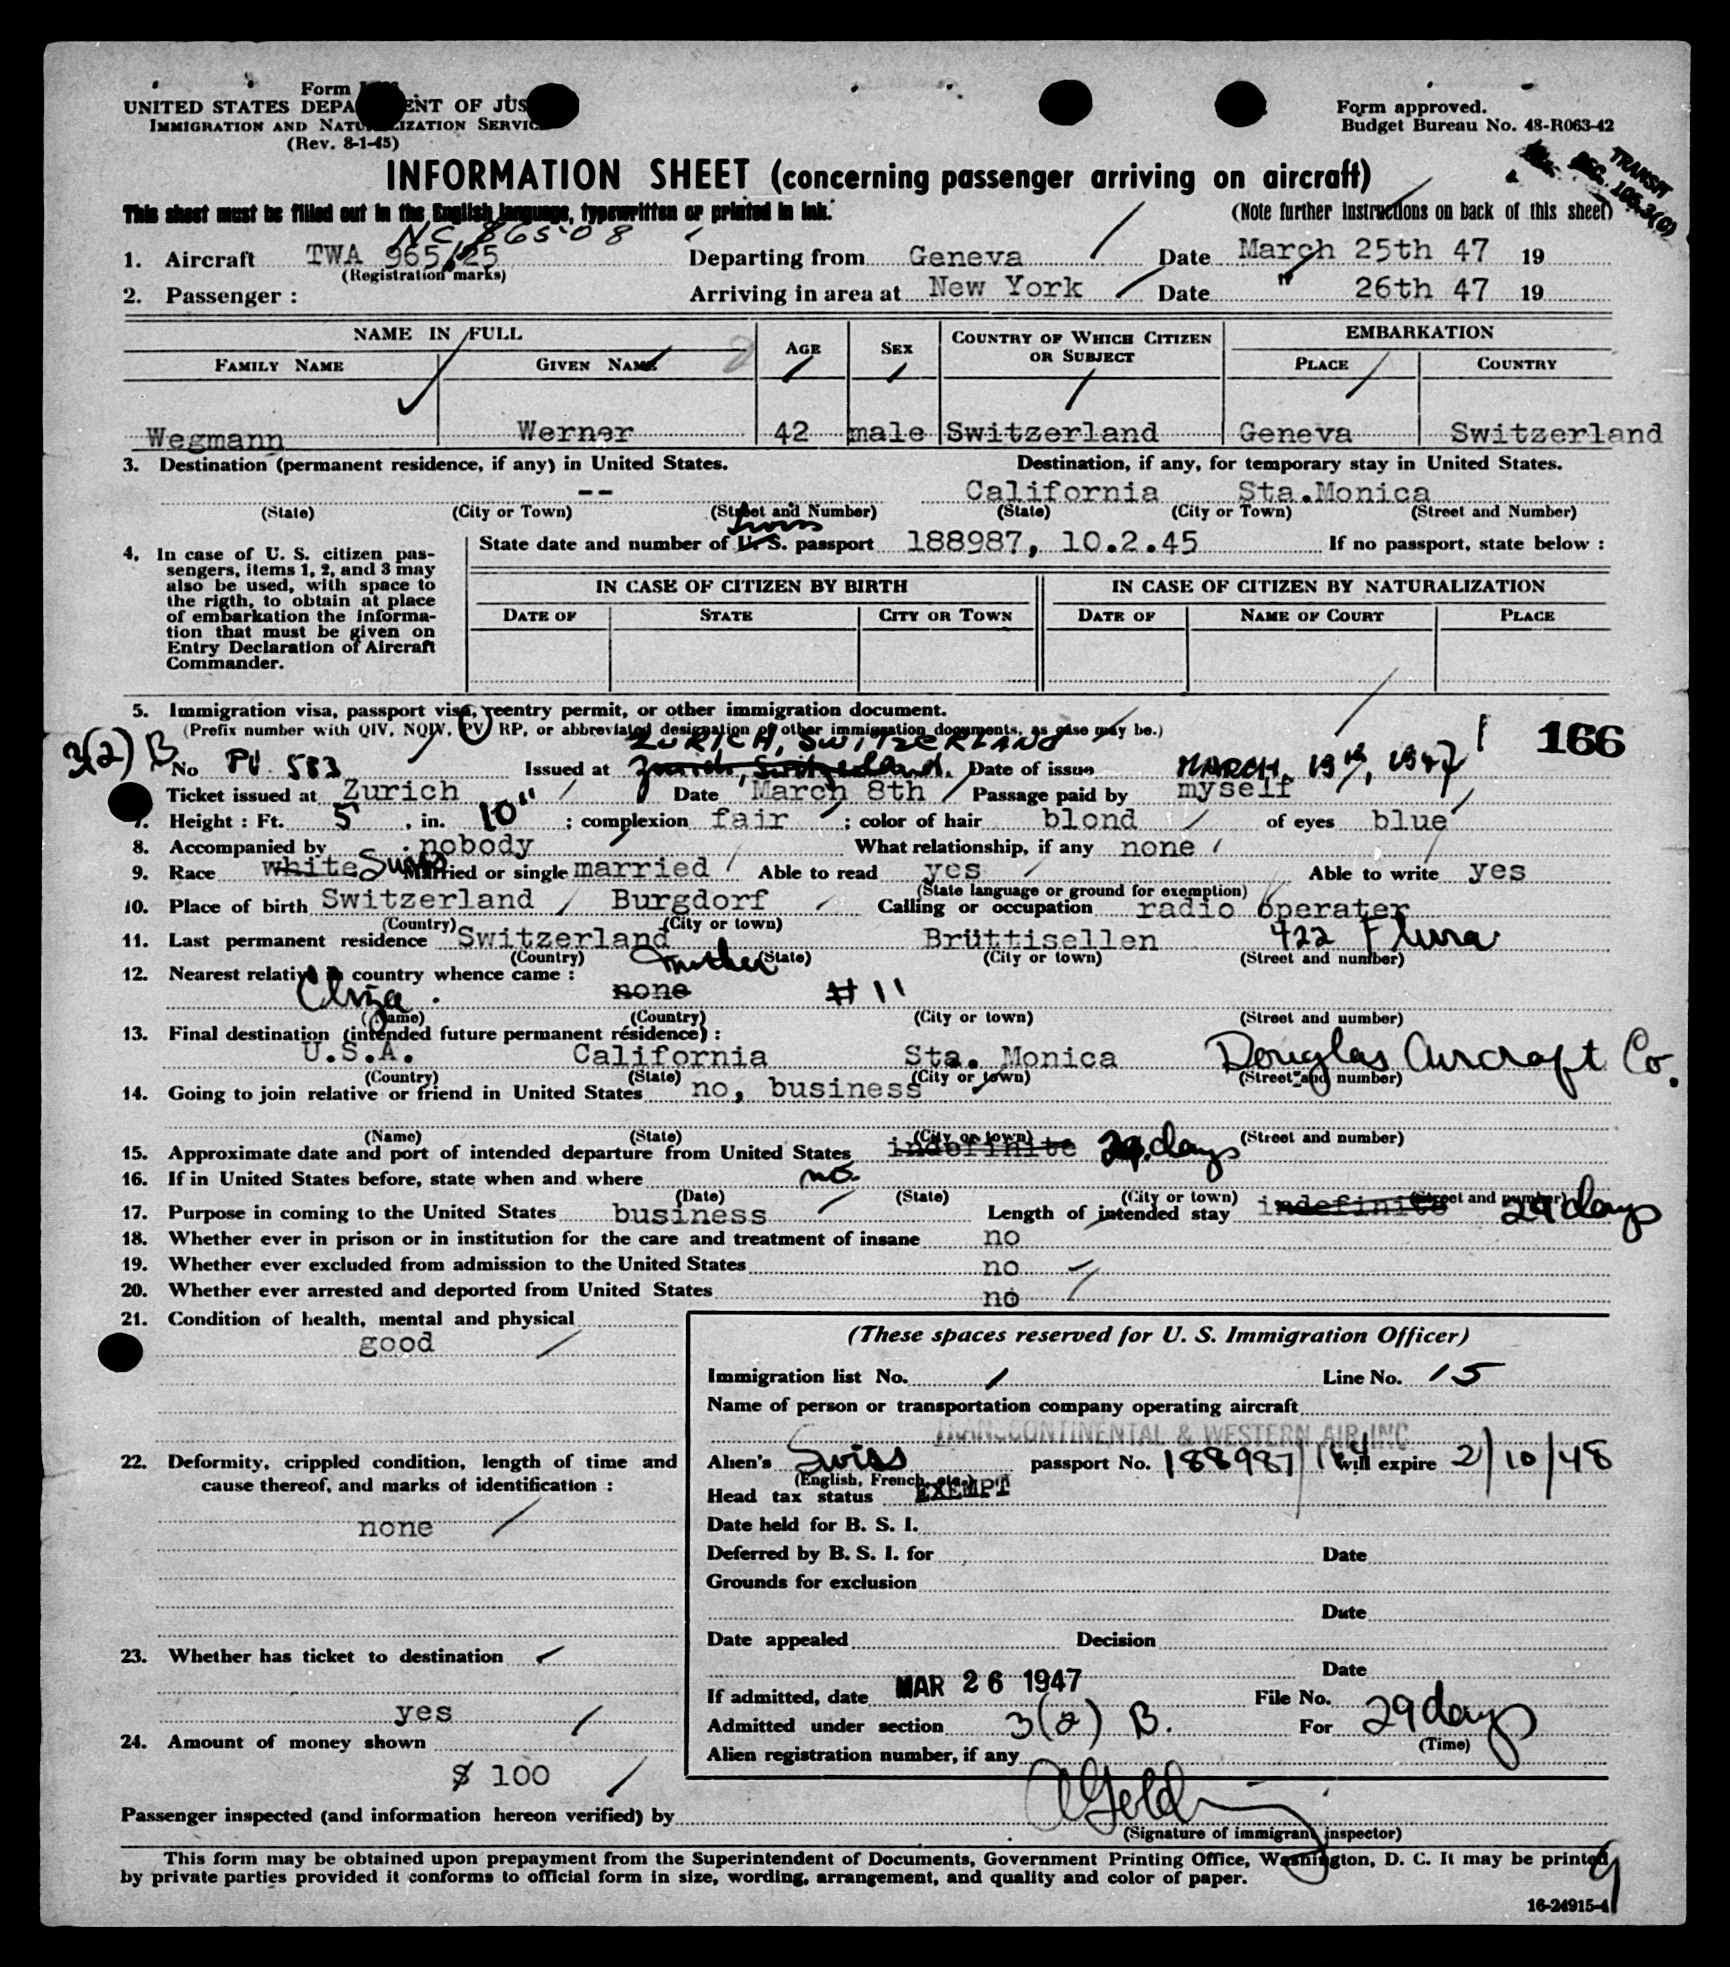 Form
UNITED STATES DEPA ENT OF JUS
IMMIGRATION AND NATU IZATION SERVIC
(Rev. 8-1-45)
Form approved.
Budget Bureau No. 48-R063-42
TRANSIT
SEC. 106.3(C)
INFORMATION SHEET (concerning passenger arriving on aircraft)
This sheet must be filled out in the English language, typewritten or printed in ink.
(Note further instructions on back of this sheet)
NC 86508
1. Aircraft TWA 965/25 Departing from Geneva Date March 25th 47 19
(Registration marks)
2. Passenger : Arriving in area at New York Date " 26th 47 19
NAME IN FULL AGE SEX COUNTRY OF WHICH CITIZEN OR SUBJECT EMBARKATION
FAMILY NAME GIVEN NAME PLACE COUNTRY
Wegmann Werner 42 male Switzerland Geneva Switzerland
3. Destination (permanent residence, if any) in United States. Destination, if any, for temporary stay in United States.
-- California Sta.Monica
(State) (City or Town) (Street and Number) (State) (City or Town) (Street and Number)
4. In case of U. S. citizen pas-
sengers, items 1, 2, and 3 may
also be used, with space to
the rigth, to obtain at place
of embarkation the informa-
tion that must be given on
Entry Declaration of Aircraft
Commander.
Swiss
State date and number of U. S. passport 188987, 10.2.45 If no passport, state below :
IN CASE OF CITIZEN BY BIRTH IN CASE OF CITIZEN BY NATURALIZATION
DATE OF STATE CITY OR TOWN DATE OF NAME OF COURT PLACE
5. Immigration visa, passport visa, reentry permit, or other immigration document.
(Prefix number with QIV, NQIV, PV, RP, or abbreviated designation of other immigration documents, as case may be.)
166
3(2) B
ZURICH, SWITZERLAND
No PV 583 Issued at Zurich, Switzerland. Date of issue MARCH 19th, 1947
Ticket issued at Zurich Date March 8th Passage paid by myself
7. Height : Ft. 5 , in. 10" ; complexion fair ; color of hair blond of eyes blue
8. Accompanied by nobody What relationship, if any none
9. Race white Swiss Married or single married Able to read yes Able to write yes
(State language or ground for exemption)
10. Place of birth Switzerland Burgdorf Calling or occupation radio operater
(Country) (City or town)
11. Last permanent residence Switzerland Brüttisellen 422 Flura
(Country) (State) (City or town) (Street and number)
12. Nearest relative in country whence came :
Eliza mother none # 11
(Name) (Country) (City or town) (Street and number)
13. Final destination (intended future permanent résidence) :
U.S.A. California Sta. Monica Douglas Aircraft Co.
(Country) (State) (City or town) (Street and number)
14. Going to join relative or friend in United States no, business
(Name) (State) (City or town) (Street and number)
15. Approximate date and port of intended departure from United States indefinite 29 days
16. If in United States before, state when and where no.
(Date) (State) (City or town) (Street and number)
17. Purpose in coming to the United States business Length of intended stay indefinite 29 days
18. Whether ever in prison or in institution for the care and treatment of insane no
19. Whether ever excluded from admission to the United States no
20. Whether ever arrested and deported from United States no
21. Condition of health, mental and physical
good
22. Deformity, crippled condition, length of time and
cause thereof, and marks of identification :
none
23. Whether has ticket to destination
yes
24. Amount of money shown
$ 100
(These spaces reserved for U. S. Immigration Officer)
Immigration list No. 1 Line No. 15
Name of person or transportation company operating aircraft
TRANSCONTINENTAL & WESTERN AIR INC
Alien's Swiss passport No. 188987 will expire 2/10/48
(English, French, etc.)
Head tax status EXEMPT
Date held for B. S. I.
Deferred by B. S. I. for Date
Grounds for exclusion
Date
Date appealed Decision
Date
If admitted, date MAR 26 1947 File No.
Admitted under section 3(2) B. For 29 days
(Time)
Alien registration number, if any
Passenger inspected (and information hereon verified) by
(Signature of immigrant inspector)
This form may be obtained upon prepayment from the Superintendent of Documents, Government Printing Office, Washington, D. C. It may be printed
by private parties provided it conforms to official form in size, wording, arrangement, and quality and color of paper.
16-24915-4